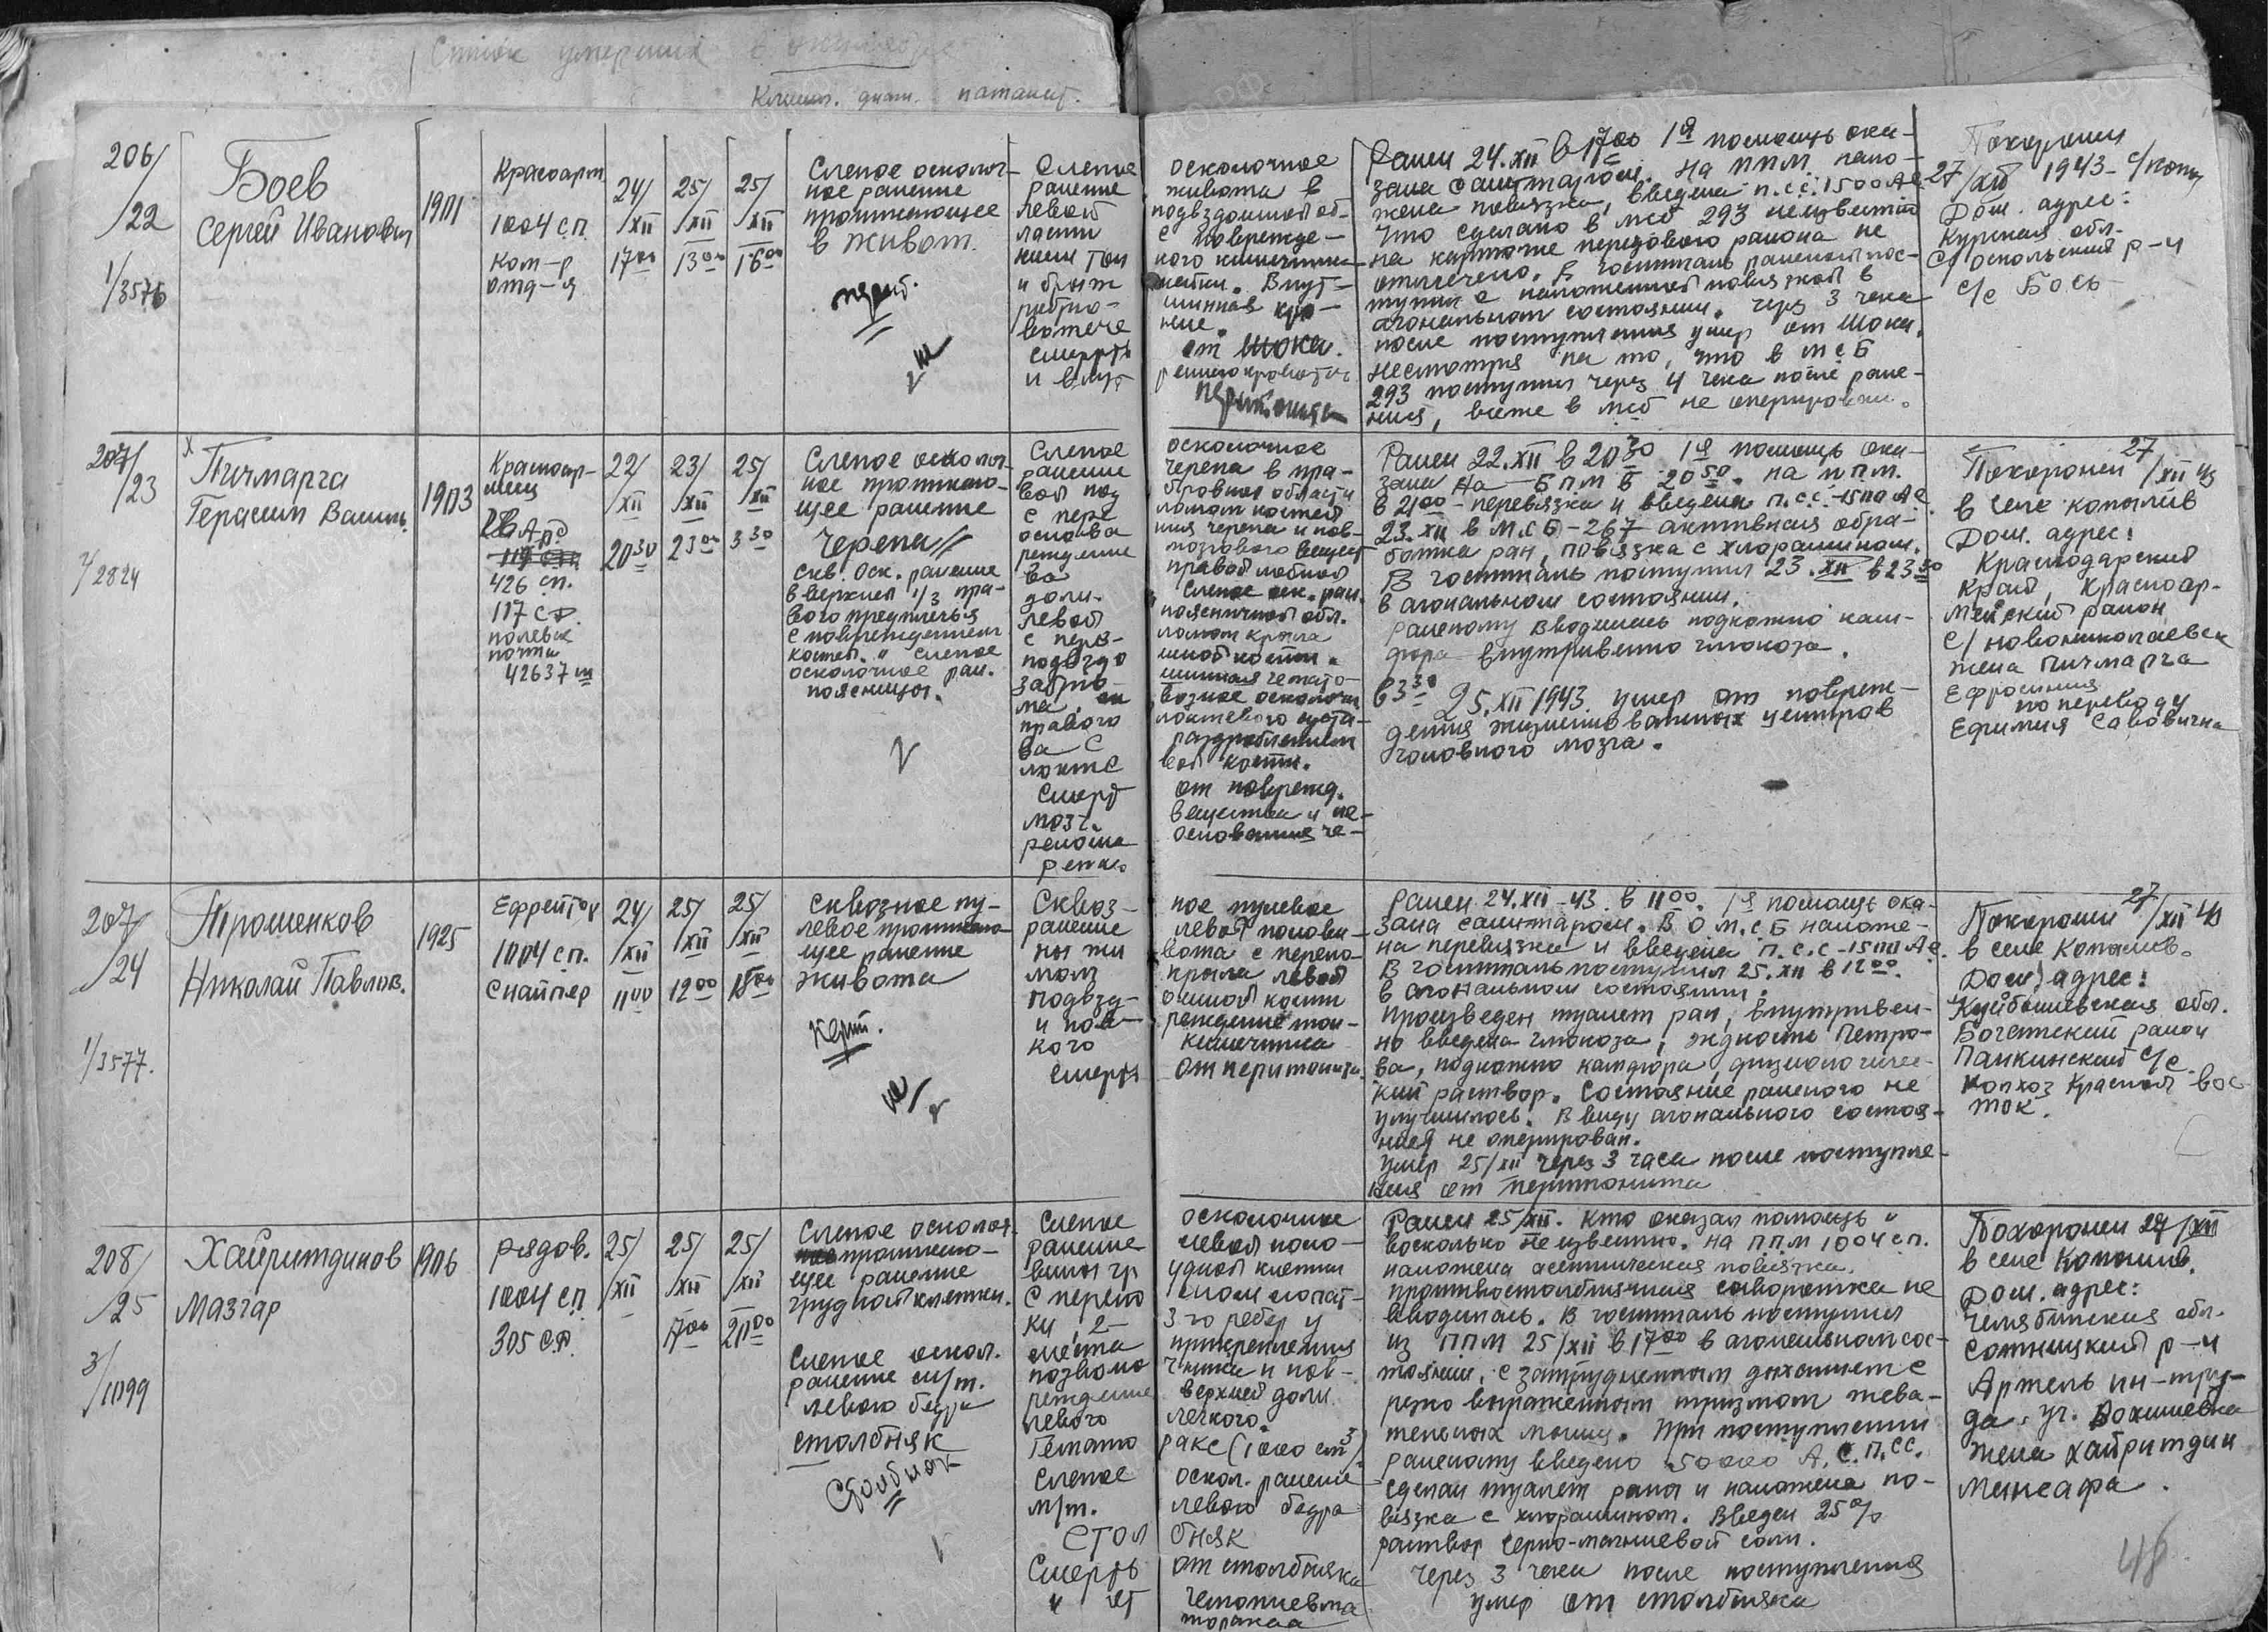 Список умерших в
Клинич. диагн. патанат.
206/22
1/3576
Боев
Сергей Иванович
1901
Красноарм
1004 с.п.
ком-р
отд-я
24/XII 17 00
25/XII 13 00
25/XII 16 00
Слепое осколоч-
ное ранение
проникающее
в живот.
перит.
Слепое осколочное
ранение живота в
левой подвздошной об-
ласти с поврежде-
нием тон кого кишечника
и брыж жейки. Внут-
рибрю- шинная кро-
вотече ние.
Смерть от шока.
и внут реннего кровотеч.
перитонита
Ранен 24.XII в 17 00 1я помощь ока-
зана санитаром. На ППМ нало-
жена повязка, введена п.с.с. 1500 АЕ
Что сделано в мсб 293 неизвестно
на карточке передового района не
отмечено. В госпиталь раненый пос-
тупил с наложенной повязкой в
агональном состоянии. Через 3 часа
после поступления умер от шока.
Несмотря на то, что в МСБ
293 поступил через 4 часа после ране-
ния, в мсб не оперирован.
Похоронен
27/XII 1943
Дом. адрес:
Курская обл.
С/оскольский р-н
с/с Боев
207/23
7/2824
х
Пичмарга
Герасим Василь.
1903
Красноар-
меец
426 сп.
117 сд.
полевая
почта
42637 ш
22/XII 20 30
23/XII 23 00
25/XII 3 30
Слепое осколоч-
ное проникаю-
щее ранение
черепа
скв. оск. ранение
в верхней 1/3 пра-
вого предплечья
с повреждением
костей. Слепое
осколочное ран.
поясницы.
Слепое осколочное
ранение черепа в пра-
вой над бровной области
с пере ломом костей
основа ния черепа и пов-
реждение мозгового вещест
ва правой лобной
доли. Слепое оск. ран.
левой поясничной обл.
с пере- ломом крыла
подвздо шной кости.
забрю- шинная гемато-
ма, ск возное осколочн
правого локтевого суста-
ва с раздроблением
локте вой кости.
Смерт от поврежд.
мозг. вещества и пе-
релома основания че-
репа.
Ранен 22.XII в 20 30 1я помощь ока-
зана на БПМ в 20 50. На ППМ.
в 21 00 - перевязка и введена п.с.с.-1500 АЕ
23.XII в М.С.Б - 267 активная обра-
ботка ран, повязка с хлорамином.
В госпиталь поступил 23.XII в 23 30
в агональном состоянии.
Раненому вводилась подкожно кам-
фора внутривенно глюкоза.
в 3 30
25.XII 1943. умер от повреж-
дения жизненно важных центров
головного мозга.
Похоронен 27/XII 43
в селе Копылив
Дом. адрес:
Краснодарский
край, Красноар-
мейский район
с/новониколаевск
жена Пичмарга
Ефросиния
по переводу
Ефимия Савовична
207/24
1/3577.
Ярошенков
Николай Павлов.
1925
Ефрейтор
1004 сп.
Снайпер
24/XII 11 00
25/XII 12 00
25/XII 15 00
Сквозное пу-
левое проникаю-
щее ранение
живота
перит.
Сквоз- ное пулевое
ранение левой полови-
ны жи вота с перело-
мом крыла левой
подвзд- ошной кости
и пов- реждение тон-
кого кишечника
Смерть от перитонита.
Ранен 24.XII-43. в 11 00. 1я помощь ока-
зана санитаром. В О.М.С.Б наложе-
на перевязка и введена п.с.с.-1500 АЕ
В госпиталь поступил 25.XII в 12 00.
в агональном состоянии.
Произведен туалет ран, внутривен-
но введена глюкоза, жидкость Петро-
ва, подкожно камфора, физиологичес-
кий раствор. Состояние раненого не
улучшилось. Ввиду агонального состоя-
ния не оперирован.
Умер 25/XII через 3 часа после поступле-
ния от перитонита
Похоронен 27/XII 43
в селе Копылив.
Дом. адрес:
Куйбышевская обл.
Богатский район
Палкинский с/с.
колхоз Красный вос-
ток.
208/25
3/1099
Хайритдинов
Мазгар
1906
рядов.
1004 сп
305 с.д.
25/XII
25/XII 17 00
25/XII 20 00
Слепое осколоч.
проникаю-
щее ранение
грудной клетки.
Слепое оскол.
ранение м/т.
левого бедра
столбняк
Столбняк
Слепое осколочное
ранение левой поло-
вины гр удной клетки
с перело мом лопат-
ки, 2- 3-го ребер у
места прикрепления
позвоно чника и пов-
реждение верхней доли
левого легкого.
Гемато ракс (1000 см3)
слепое оскол. ранение
м/т. левого бедра
Стол бняк
Смерть от столбняка
Ранен 25/XII. Кто оказал помощь и
восколько неизвестно. На ППМ 1004 сп.
наложена асептическая повязка.
противостолбнячная сыворотка не
вводилась. В госпиталь поступил
из ППМ 25/XII в 17 00 в агональном сос-
тоянии, с затрудненным дыханием с
резко выраженным тризмом жева-
тельных мышц. При поступлении
раненому введено 50000 А.Е. П.СС.
сделан туалет раны и наложена по-
вязка с хлорамином. Введен 25%
раствор серно-магниевой соли.
Через 3 часа после поступления
умер от столбняка
Похоронен 27/XII
в селе Копылив.
Дом. адрес:
Челябинская обл.
р-н
Артель
жена Хайритдин
Минсафа.
48